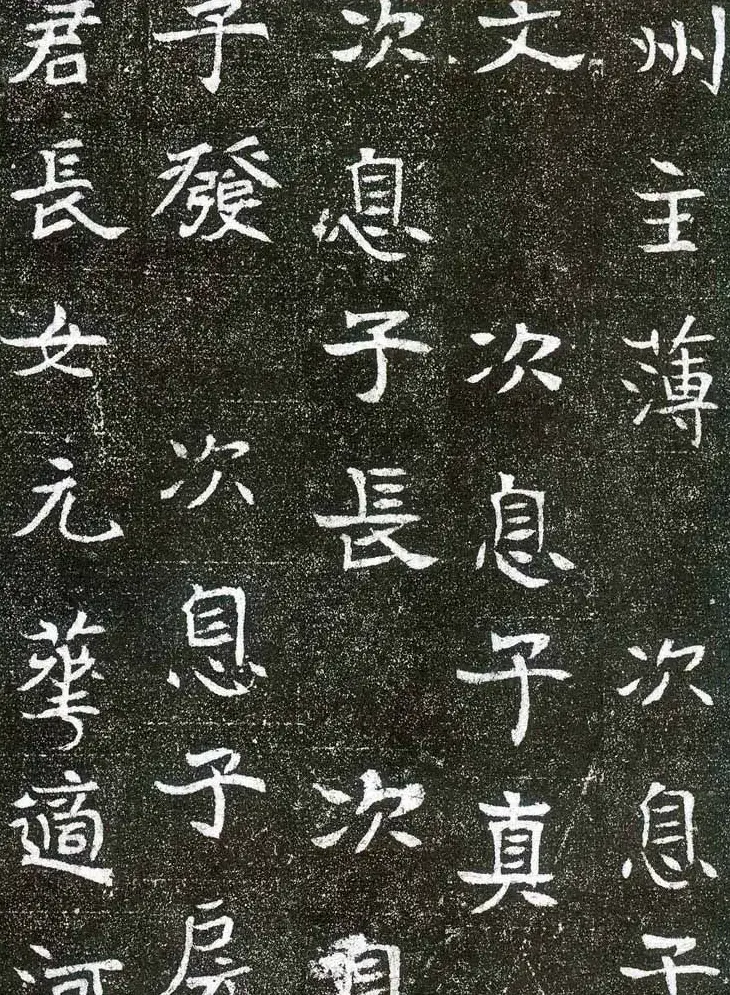 州主薄 次息子
文 次息子真
次息子長 次息
子發 次息子房
君長女元華適河